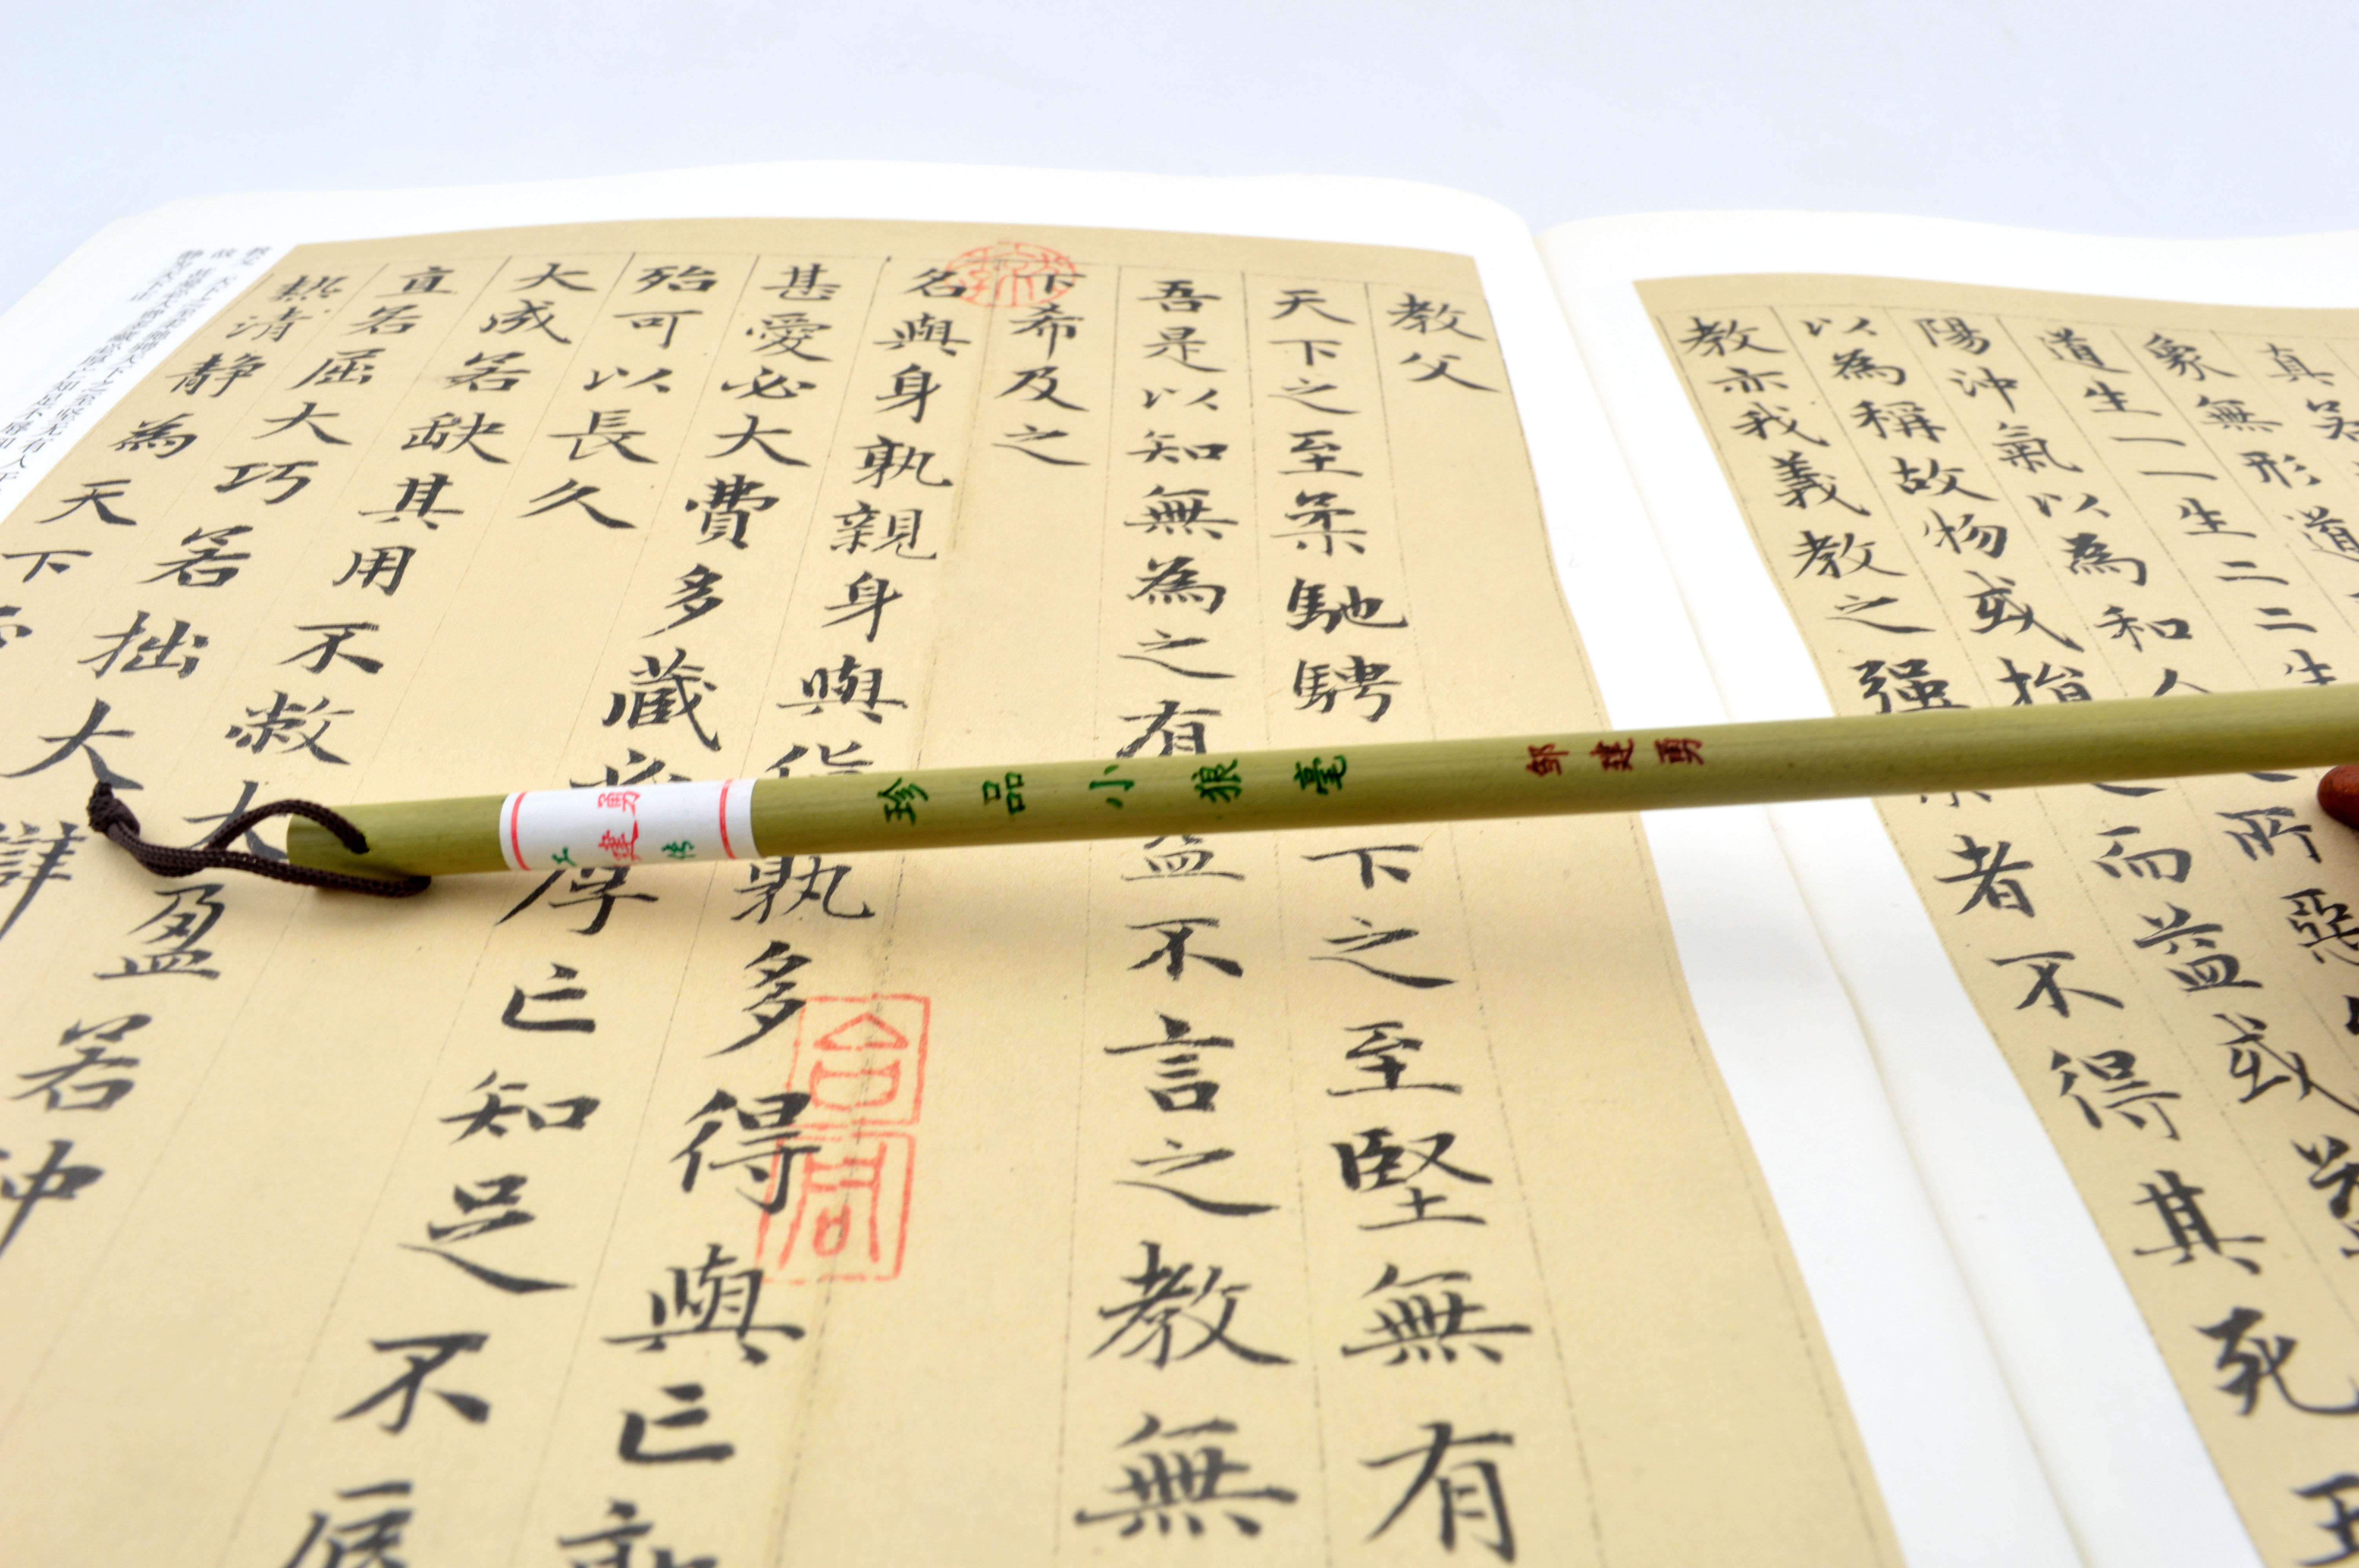 真若
象無形道
道生一一生二二生
陽沖氣以為和人之所惡
以為稱故物或損之而益或益
教亦我義教之強梁者不得其死
教父
天下之至柔馳騁下之至堅無有
吾是以知無為之有益不言之教無
下希及之
名與身孰親身與貨孰多得與亡孰
甚愛必大費多藏必厚亡知足不辱
殆可以長久
大成若缺其用不敝大盈若沖
直若屈大巧若拙大辯
熱清靜為天下
珍品小狼毫 邹建勇
建勇